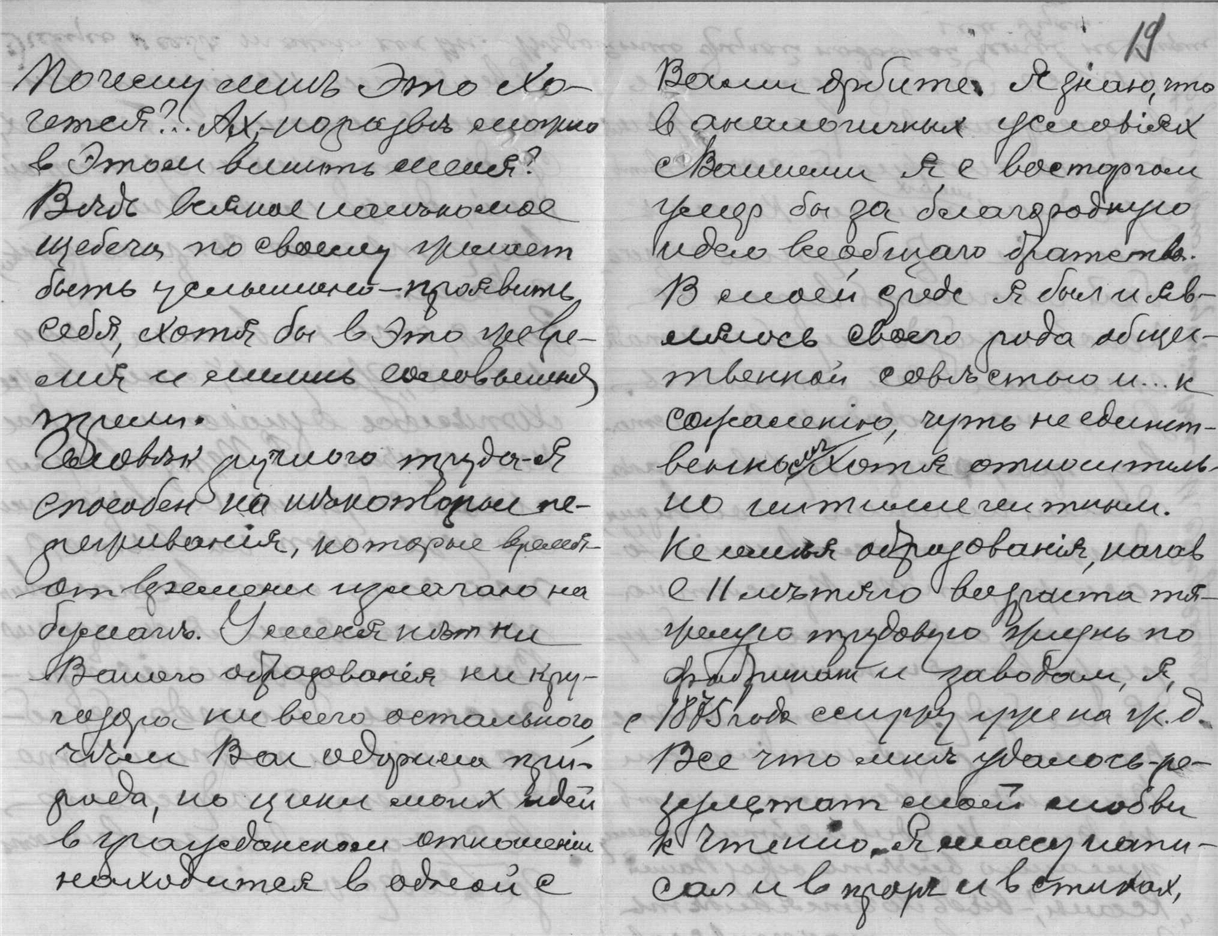 19
Почему мнѣ это хо-
чется?.. Ах, но развѣ можно
в этом винить меня?
Вѣдь всякое насѣкомое
щебеча по своему желает
быть услышано-проявить
себя, хотя бы в это время
и лились соловьиныя
трели.
Человѣк ручного труда-я
способен на нѣкоторыя пе-
реживания, которые время-
от времени излагаю на
бумагѣ. У меня нѣт ни
Вашего образованія ни кру-
гозора ни всего остального,
чѣм Вас одарила при-
рода, но цикл моих идей
в гражданском отношении
находится в одной с
Вами орбите. Я знаю, что
в аналогичных условіях
с Вашими я с восторгом
умер бы за благородную
идею всеобщаго братства.
В моей средѣ я был и яв-
ляюсь своего рода общес-
твенной совѣстью и... к
сожалению, чуть не единст-
венным хотя относитель-
но интиллегентным.
Не имѣя образованія, начав
с 11 лѣтняго возраста тя-
желую трудовую жизнь по
фабрикам и заводам, я,
с 1875 года служу уже на ж.д.
Все что мнѣ удалось-ре-
зультат моей любви
к чтению. Я массу напи-
сал и в прозѣ и в стихах,